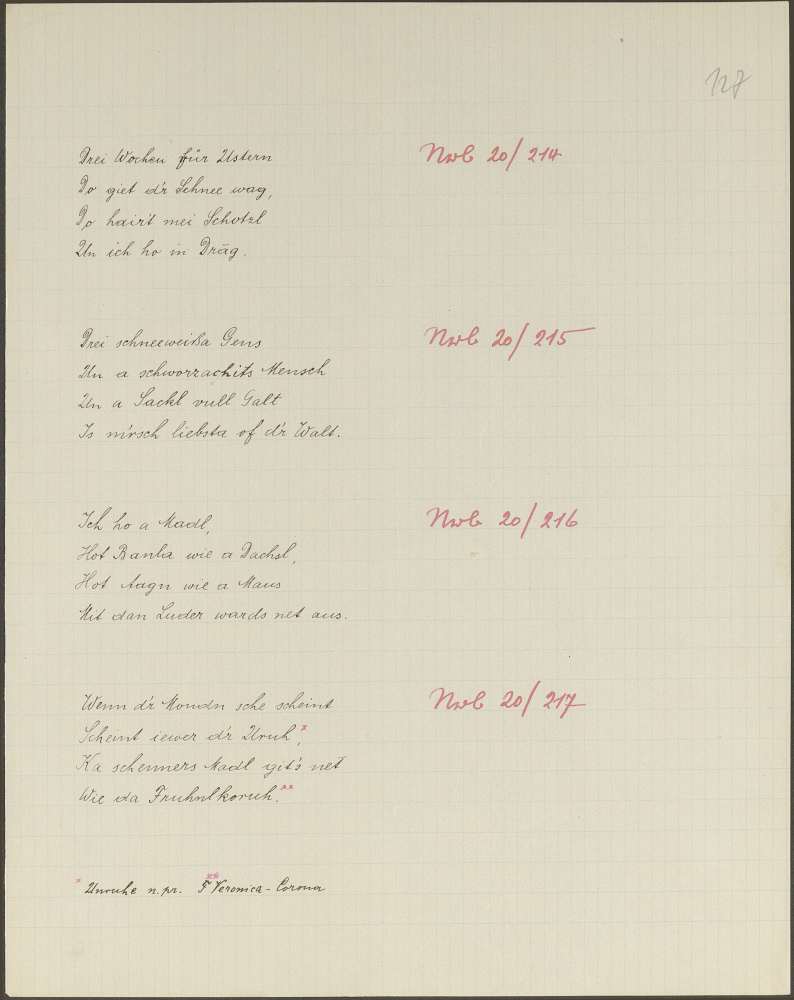 127
Drei Wochen für Ustern
Do giet d'r Schnee wag,
Do hair't mei Schotzl
Un ich ho in Dräg.
Nwb 20/214
Drei schneeweißa Gens
Un a schworzachits Mensch
Un a Sackl vull Galt
Is m'rsch liebsta of d'r Walt.
Nwb 20/215
Ich ho a Madl,
Hot Banla wie a Dachsl,
Hot Aagn wie a Maus
Mit dan Luder wards net aus.
Nwb 20/216
Wenn d'r Moudn sche scheint
Scheint iewer d'r Uruh*,
Ka schenners Madl git's net
Wie da Fruhnlkoruh.**
Nwb 20/217
* Unruhe n. pr. ** Veronica-Corona